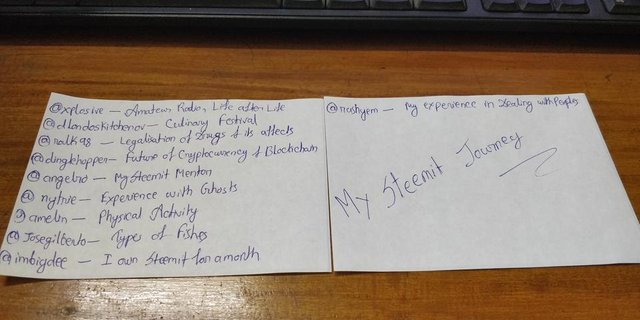 @xplosive — Amateur Radio, Life after Life
@dlendoskitchenov — Culinary Festival
@nalk98 — Legalisation of Drugs & its affects
@dinglehopper — Future of Cryptocurrency & Blockchain
@angelino — My Steemit Mentor
@nytive — Experience with Ghosts
@amelin — Physical Activity
@Josegilberto — Types of Fishes
@imbigdee — I own Steemit for a month
@nashyem — My experience in Dealing with Peoples
My Steemit Journey